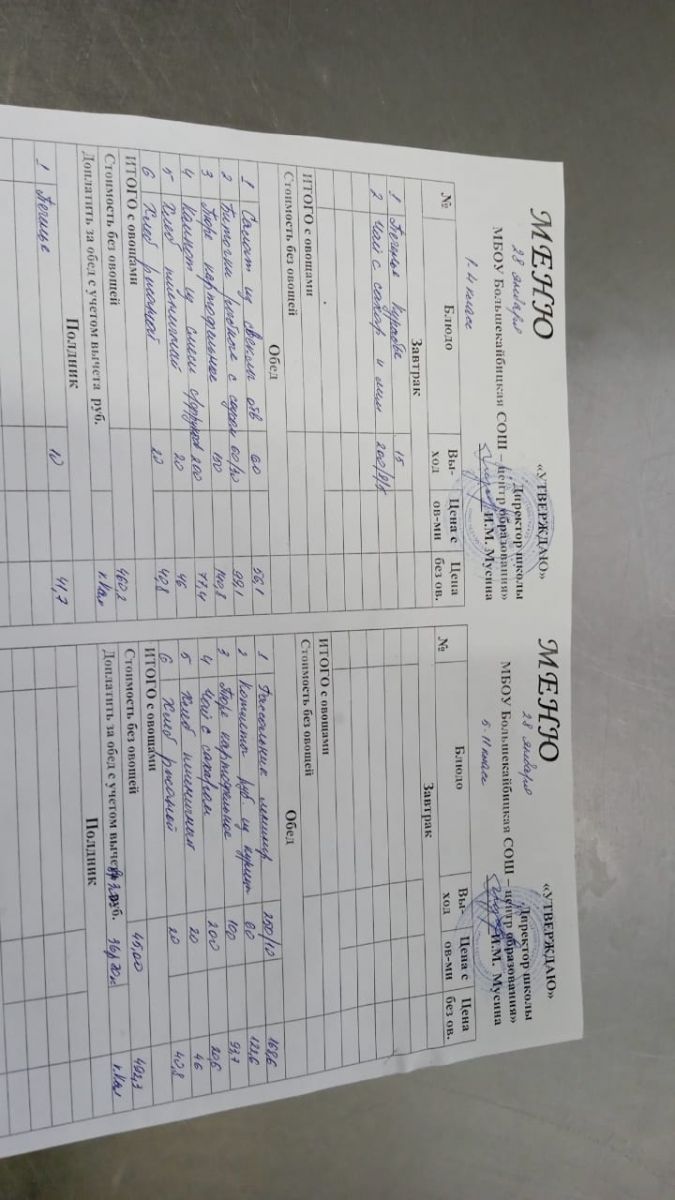 «УТВЕРЖДАЮ»
Директор школы
И.М. Мусина
МЕНЮ
28 января
МБОУ Большекайбицкая СОШ – центр образования»
1-4 класс
№ Блюдо Вы-ход Цена с ов-ми Цена без ов.
Завтрак
1 Печенье Курабье 15
2 Чай с сахар и лим 200/9/5
ИТОГО с овощами
Стоимость без овощей
Обед
1 Салат из свеклы отв 60 56,1
2 Биточки рыбные с сыром 60/30 99,1
3 Пюре картофельное 150 140,8
4 Компот из смеси с/фруктов 200 77,4
5 Хлеб пшеничный 20 46
6 Хлеб ржаной 20 40,8
ИТОГО с овощами
Стоимость без овощей 460,2
Доплатить за обед с учетом вычета руб. к.Кал
Полдник
1 Печенье 10 41,7
«УТВЕРЖДАЮ»
Директор школы
И.М. Мусина
МЕНЮ
28 января
МБОУ Большекайбицкая СОШ – центр образования»
5-11 класс
№ Блюдо Вы-ход Цена с ов-ми Цена без ов.
Завтрак
ИТОГО с овощами
Стоимость без овощей
Обед
1 Рассольник 250/10 168,6
2 Котлеты руб из курицы 80 123,6
3 Пюре картофельное 100 93,7
4 Чай с сахаром 200 20,6
5 Хлеб пшеничный 20 46
6 Хлеб ржаной 20 40,8
ИТОГО с овощами
Стоимость без овощей 45,00 492,3
Доплатить за обед с учетом вычета руб. к.Кал
Полдник